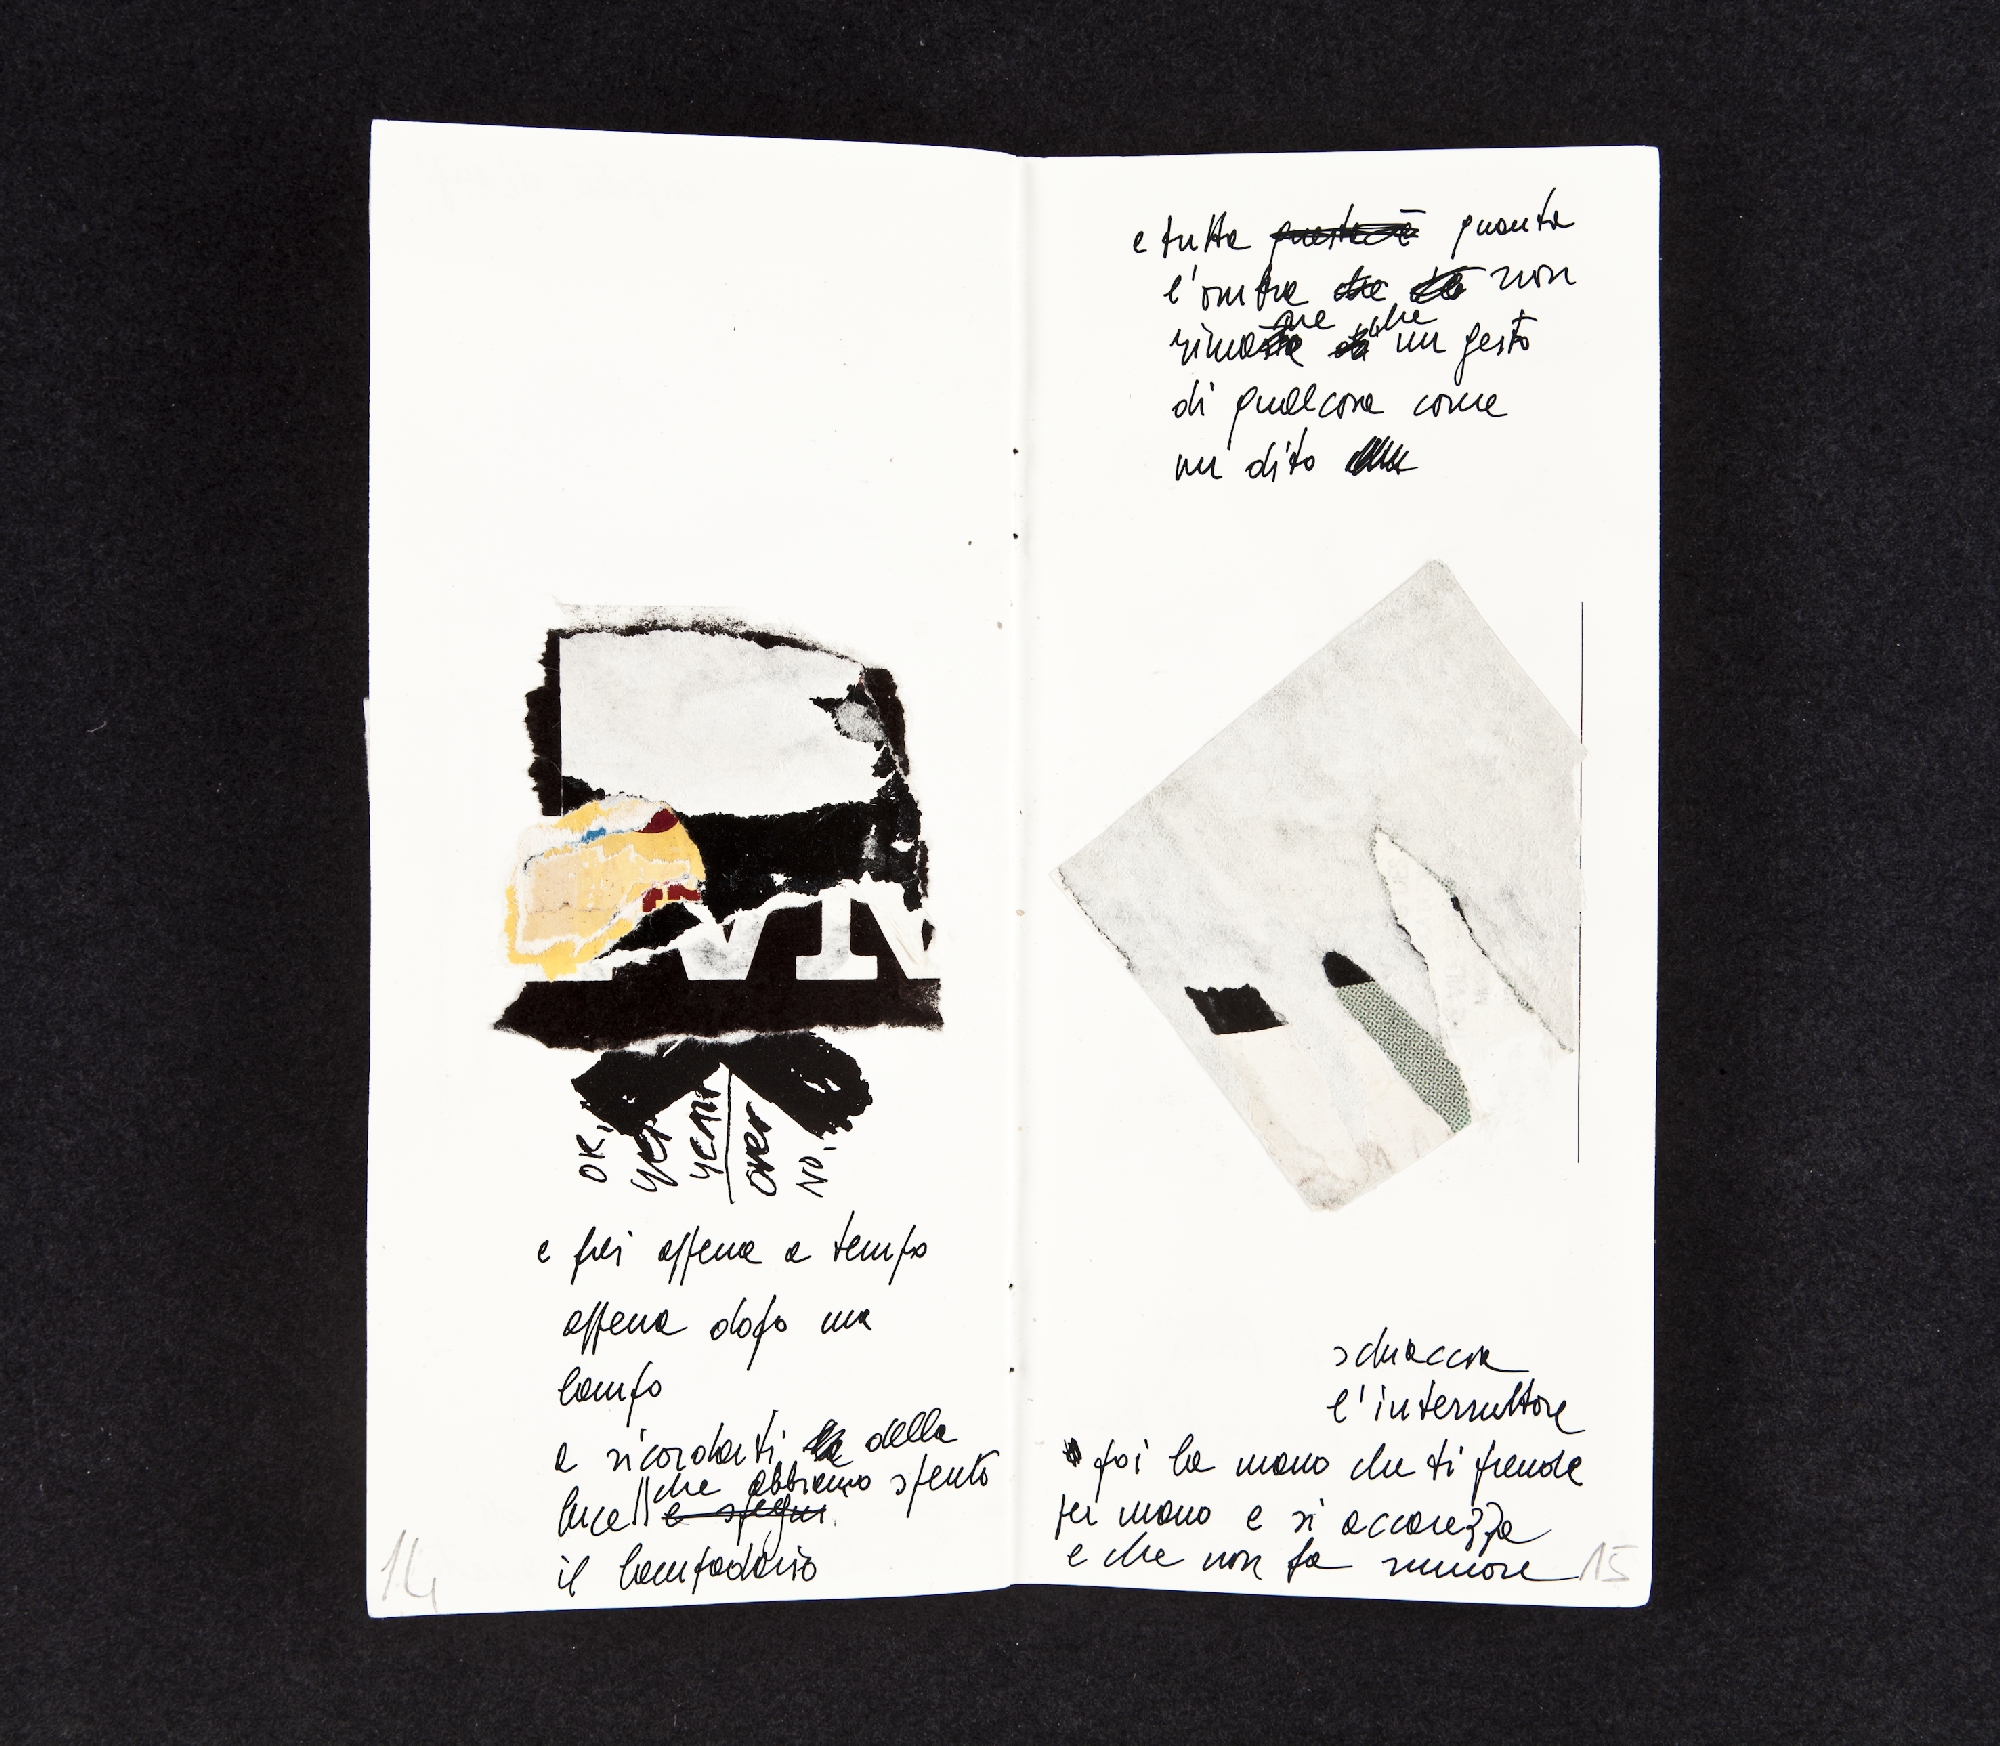 OK,
yes
yeah
over
NO,
e poi appena a tempo
appena dopo un
lampo
a ricordarti della
luce che abbiamo spento
e spegni
il lampadario
14
e tutta quanta
l'ombra non
rimane che un gesto
di qualcosa come
un dito
schiaccia
l'interruttore
poi la mano che ti prende
per mano e si accarezza
e che non fa rumore
15